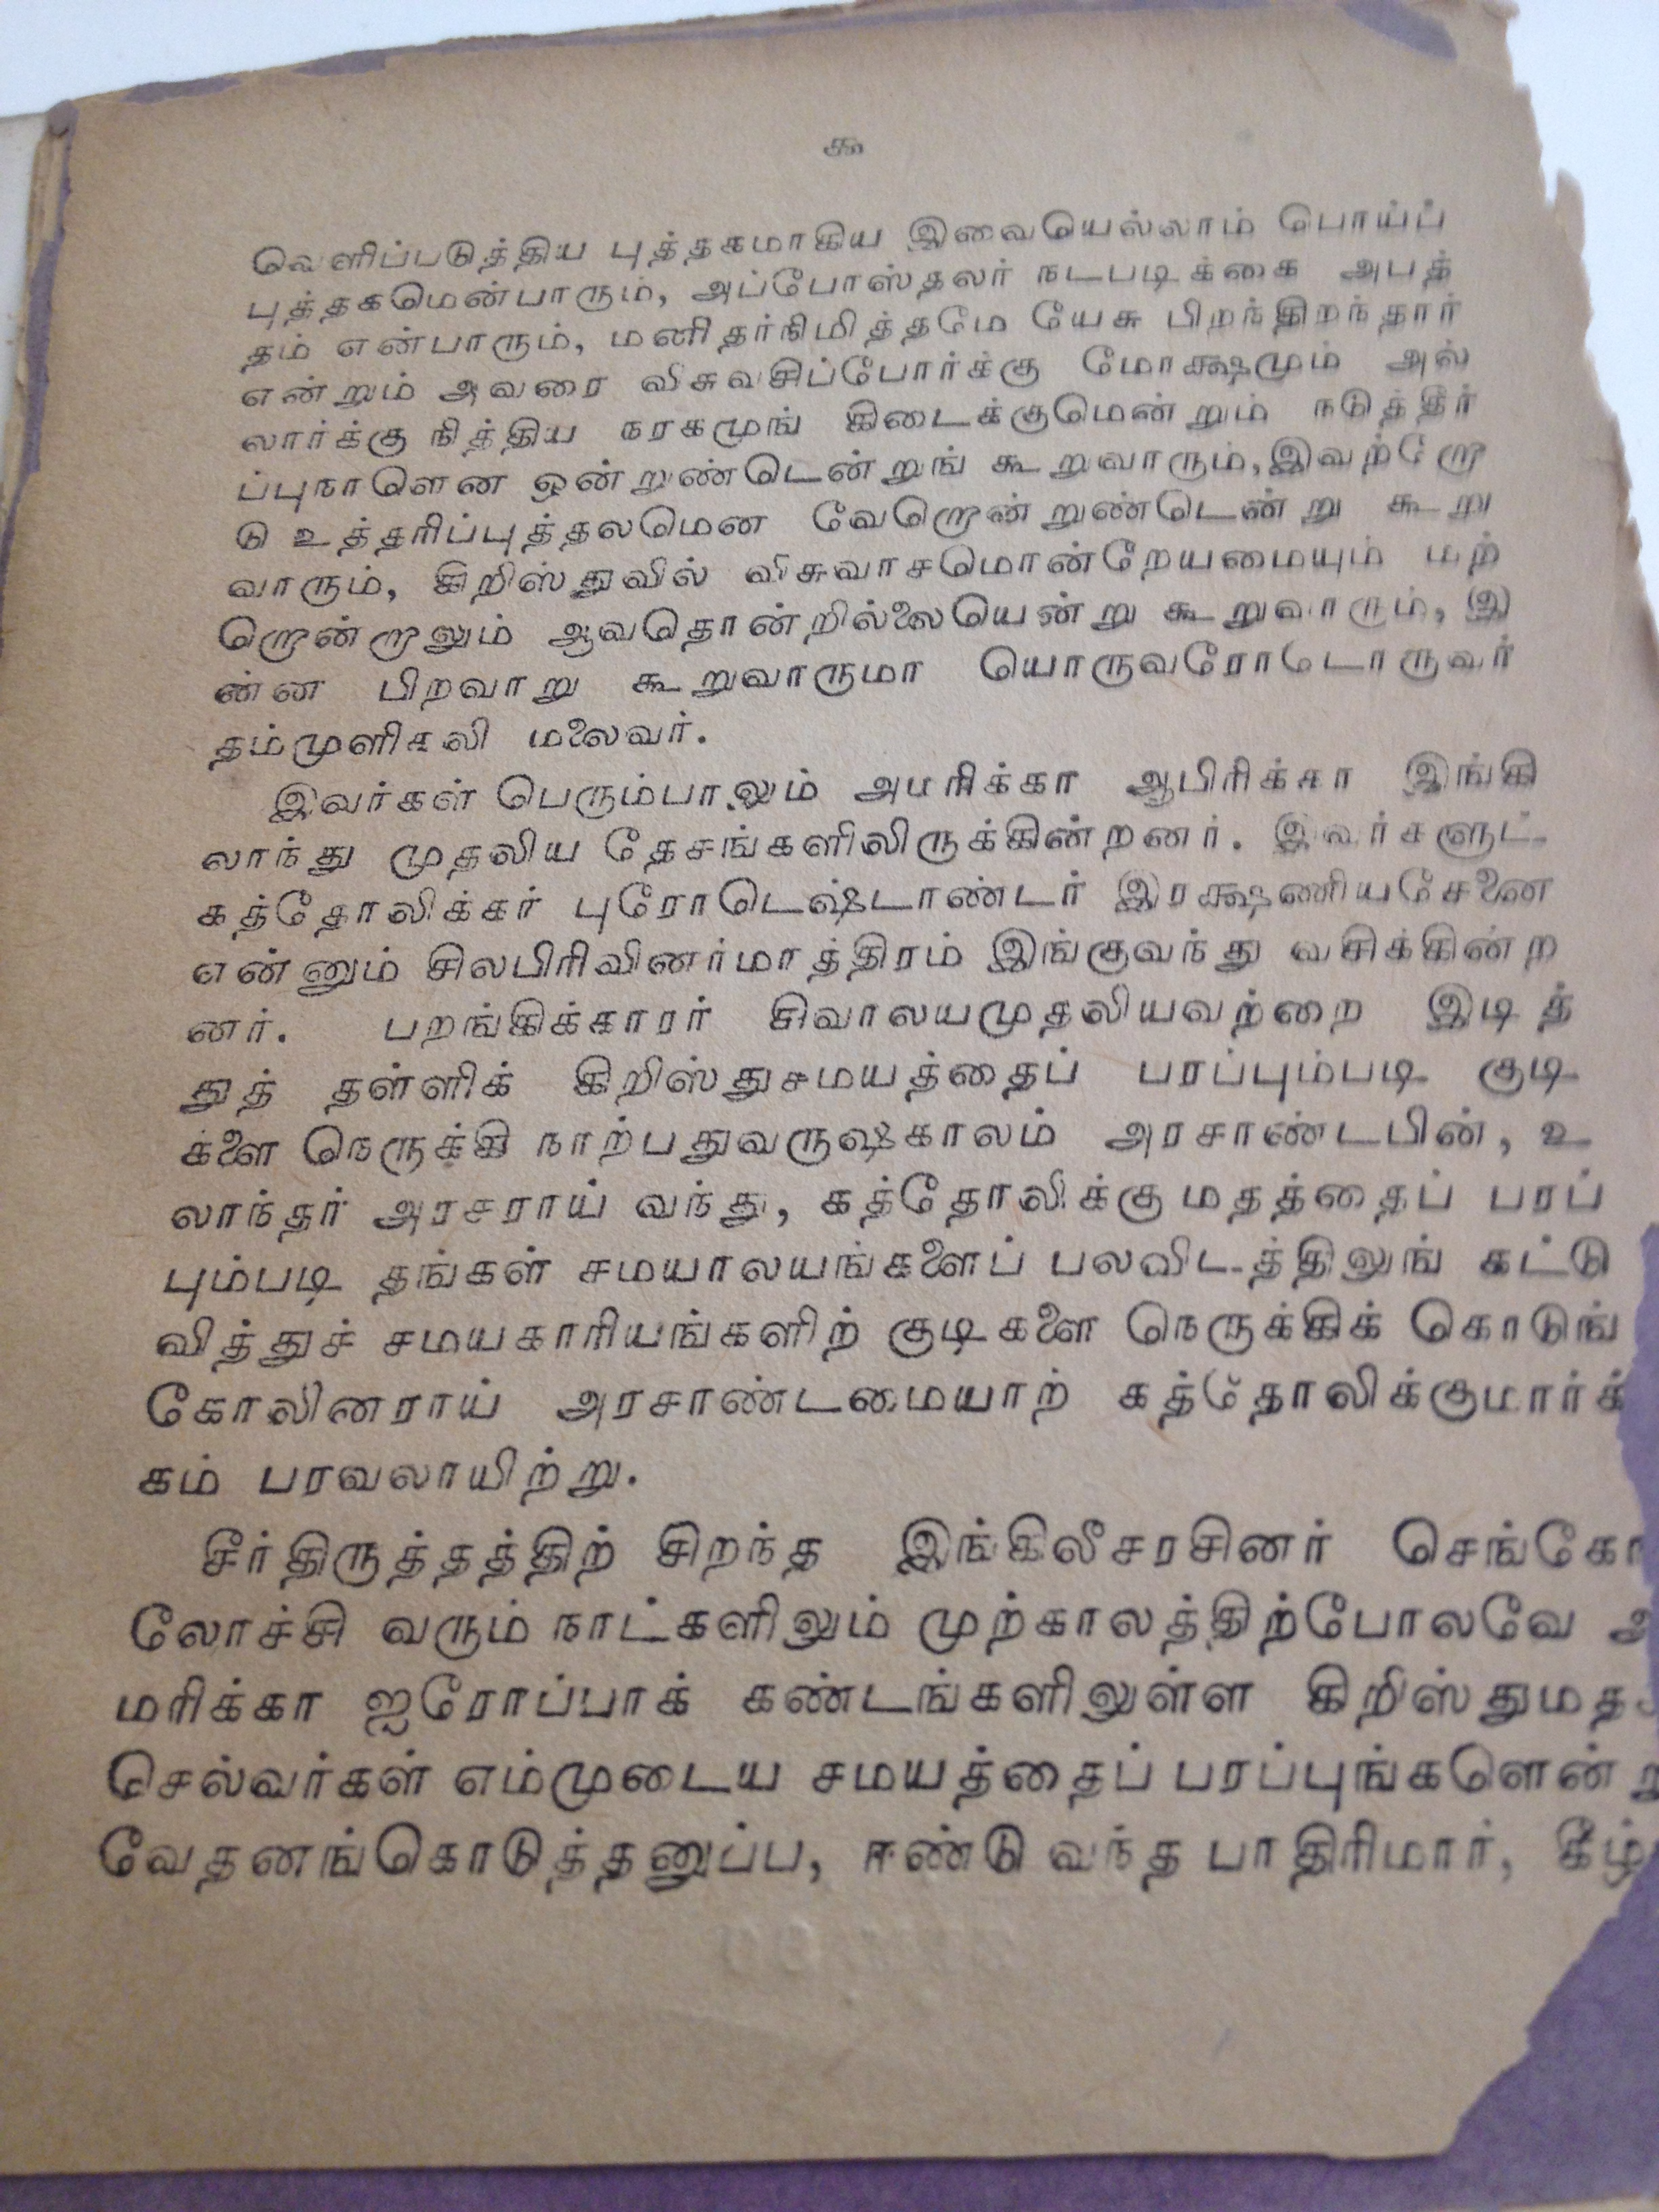 ௯
வெளிப்படுத்திய புத்தகமாகிய இவையெல்லாம் பொய்ப்
புத்தகமென்பாரும், அப்போஸ்தலர் நடபடிக்கை அபத்
தம் என்பாரும், மனிதர்நிமித்தமே யேசு பிறந்திறந்தார்
என்றும் அவரை விசுவசிப்போர்க்கு மோக்ஷமும் அல்
லார்க்கு நித்திய நரகமுங் கிடைக்குமென்றும் நடுத்தீர்
ப்புநாளென ஒன்றுண்டென்றுங் கூறுவாரும், இவற்றோ
டு உத்தரிப்புத்தலமென வேறொன்றுண்டென்று கூறு
வாரும், கிறிஸ்துவில் விசுவாசமொன்றேயமையும் மற்
றொன்றாலும் ஆவதொன்றில்லையென்று கூறுவாரும், இ
ன்ன பிறவாறு கூறுவாருமா யொருவரோடொருவர்
தம்முளிகலி மலைவர்.
இவர்கள் பெரும்பாலும் அமரிக்கா ஆபிரிக்கா இங்கி
லாந்து முதலிய தேசங்களிலிருக்கின்றனர். இவர்களுட்
கத்தோலிக்கர் புரோடெஷ்டாண்டர் இரக்ஷணியசேனை
என்னும் சிலபிரிவினர்மாத்திரம் இங்குவந்து வசிக்கின்ற
னர். பறங்கிக்காரர் சிவாலயமுதலியவற்றை இடித்
துத் தள்ளிக் கிறிஸ்துசமயத்தைப் பரப்பும்படி குடி
களை நெருக்கி நாற்பதுவருஷகாலம் அரசாண்டபின், உ
லாந்தர் அரசராய் வந்து, கத்தோலிக்குமதத்தைப் பரப்
பும்படி தங்கள் சமயாலயங்களைப் பலவிடத்திலுங் கட்டு
வித்துச் சமயகாரியங்களிற் குடிகளை நெருக்கிக் கொடுங்
கோலினராய் அரசாண்டமையாற் கத்தோலிக்குமார்க்
கம் பரவலாயிற்று.
சீர்திருத்தத்திற் சிறந்த இங்கிலீசரசினர் செங்கோ
லோச்சி வரும் நாட்களிலும் முற்காலத்திற்போலவே அ
மரிக்கா ஐரோப்பாக் கண்டங்களிலுள்ள கிறிஸ்துமத
செல்வர்கள் எம்முடைய சமயத்தைப் பரப்புங்களென்று
வேதனங்கொடுத்தனுப்ப, ஈண்டு வந்த பாதிரிமார், கீழ்